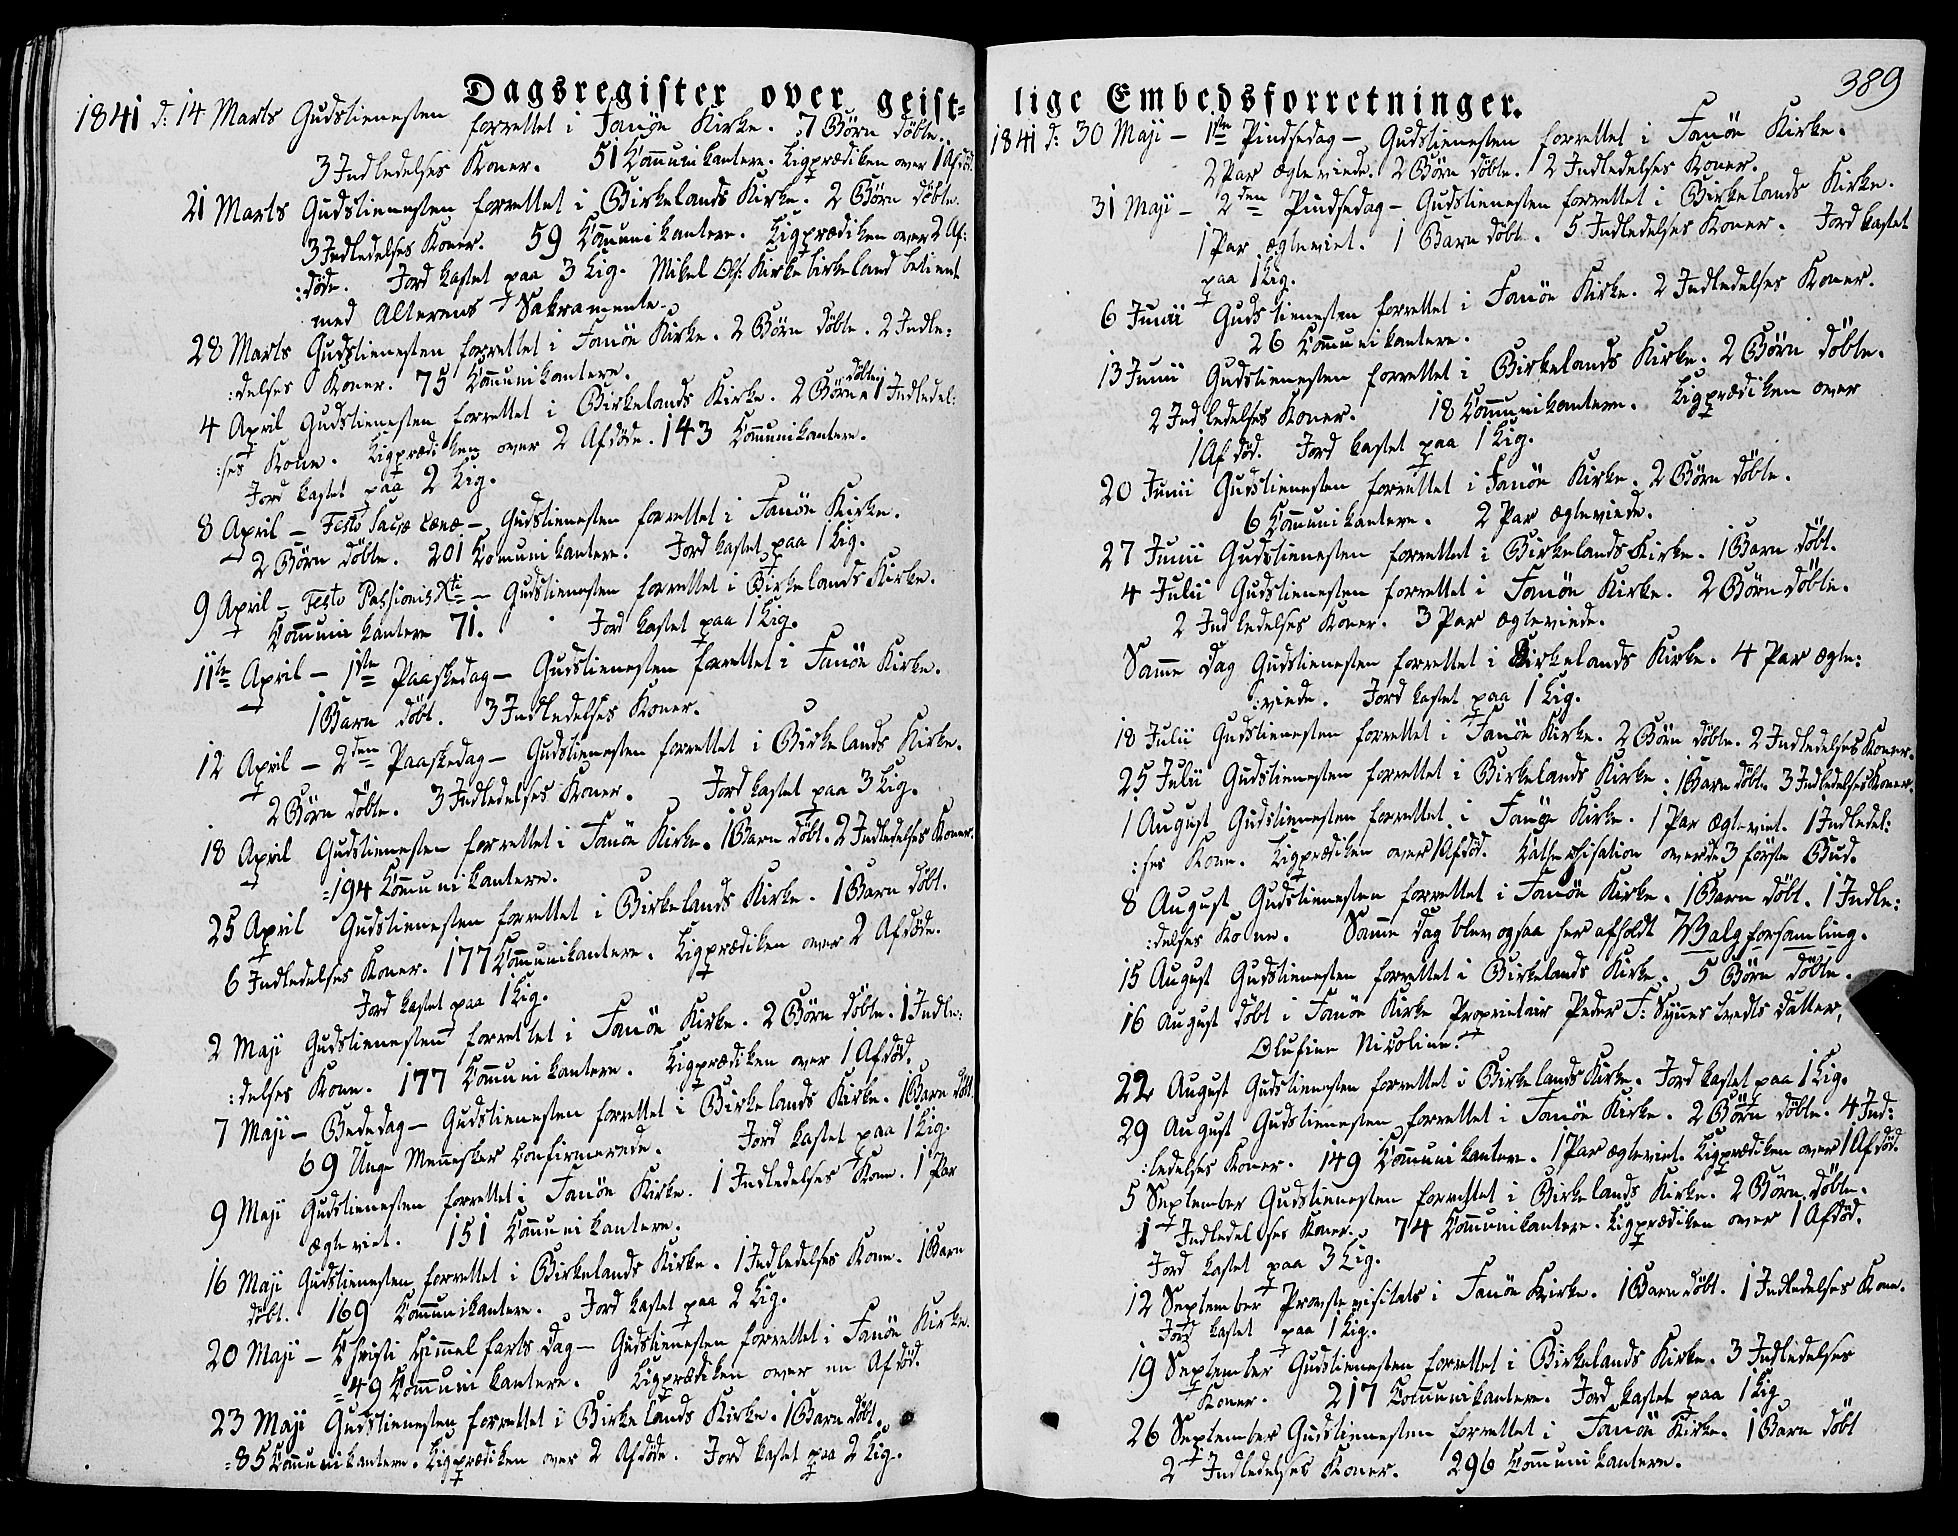 Dagsregister over geist=
1841 d: 14 Marts Gudstienesten forrettet i Fanöe Kirke. 7 Börn döbte.
3 Indledelses Koner. 51 Communikantere. Ligprædiken over 1 Afdöd.
21 Marts Gudstienesten forrettet i Birkelands Kirke. 2 Börn döbte.
3 Indledelses Koner. 59 Communikantere. Ligprædiken over 2 Af:
:döde. Jord kastet paa 3 Lig. Mikel Ols: Kirkebirkeland betient
med Alterens Sakramente.
28 Marts Gudstienesten forrettet i Fanöe Kirke. 2 Börn döbte. 2 Indle:
:delses Koner. 75 Communikantere.
4 April Gudstienesten forrettet i Birkelands Kirke. 2 Börn döbte 1 Indledel:
:ses Kone. Ligprædiken over 2 Afdöde. 143 Communikantere.
Jord kastet paa 2 Lig.
8 April – Festo Sacræ Cænæ – Gudstienesten forrettet i Fanöe Kirke.
2 Börn döbte. 201 Communikantere. Jord kastet paa 1 Lig.
9 April – Festo Passionis Xti – Gudstienesten forrettet i Birkelands Kirke.
Communikantere 71. Jord kastet paa 1 Lig.
11te April – 1ste Paaskedag – Gudstienesten forrettet i Fanöe Kirke.
1 Barn döbt. 3 Indledelses Koner.
12 April – 2den Paaskedag – Gudstienesten forrettet i Birkelands Kirke.
2 Börn döbte. 3 Indledelses Koner. Jord kastet paa 3 Lig.
18 April Gudstienesten forrettet i Fanöe Kirke. 1 Barn döbt. 2 Indledelses Koner.
=194 Communikantere.
25 April Gudstienesten forrettet i Birkelands Kirke. 1 Barn döbt.
6 Indledelses Koner. 177 Communikantere. Ligprædiken over 2 Afdöde.
Jord kastet paa 1 Lig.
2 Maji Gudstienesten forrettet i Fanöe Kirke. 2 Börn döbte. 1 Indle:
:delses Kone. 177 Communikantere. Ligprædiken over 1 Afdöd.
7 Maji – Bededag – Gudstienesten forrettet i Birkelands Kirke. 1 Barn döbt.
69 Unge Mennesker Confirmerede. Jord kastet paa 1 Lig.
9 Maji Gudstienesten forrettet i Fanöe Kirke. 1 Indledelses Kone. 1 Par
ægteviet. 151 Communikantere.
16 Maji Gudstienesten forrettet i Birkelands Kirke. 1 Indledelses Kone. 1 Barn
döbt. 169 Communikantere. Jord kastet paa 2 Lig.
20 Maji – Christi Himmelfarts Dag – Gudstienesten forrettet i Fanöe Kirke.
=49 Communikantere. Ligprædiken over en Afdöd.
23 Maji Gudstienesten forrettet i Birkelands Kirke. 1 Barn döbt.
=85 Communikantere. Ligprædiken over 2 Afdöde. Jord kastet paa 2 Lig.
389
lige Embedsforretninger.
1841 d: 30 Maji – 1ste Pindsedag – Gudstienesten forrettet i Fanöe Kirke.
2 Par ægteviede. 2 Börn döbte. 2 Indledelses Koner.
31 Maji – 2den Pindsedag – Gudstienesten forrettet i Birkelands Kirke.
1 Par ægteviet. 1 Barn döbt. 5 Indledelses Koner. Jord kastet
paa 1 Lig.
6 Junii Gudstienesten forrettet i Fanöe Kirke. 2 Indledelses Koner.
26 Communikantere.
13 Junii Gudstienesten forrettet i Birkelands Kirke. 2 Börn döbte.
2 Indledelses Koner. 18 Communikantere. Ligprædiken over
1 Afdöd. Jord kastet paa 1 Lig.
20 Junii Gudstienesten forrettet i Fanöe Kirke. 2 Börn döbte.
6 Communikantere. 2 Par ægteviede.
27 Junii Gudstienesten forrettet i Birkelands Kirke. 1 Barn döbt.
4 Julii Gudstienesten forrettet i Fanöe Kirke. 2 Börn döbte.
2 Indledelses Koner. 3 Par ægteviede.
Samme Dag Gudstienesten forrettet i Birkelands Kirke. 4 Par ægte:
:viede. Jord kastet paa 1 Lig.
18 Julii Gudstienesten forrettet i Fanöe Kirke. 2 Börn döbte. 2 Indledelses Koner.
25 Julii Gudstienesten forrettet i Birkelands Kirke: 1 Barn döbt. 3 Indledelses Koner.
1 August Gudstienesten forrettet i Fanöe Kirke. 1 Par ægteviet. 1 Indledel:
:ses Kone. Ligprædiken over 1 Afdöd. Cathechisation over de 3 förste Bud.
8 August Gudstienesten forrettet i Fanöe Kirke. 1 Barn döbt. 1 Indle:
:delses Kone. Samme Dag blev ogsaa her afholdt Walgforsamling.
15 August Gudstienesten forrettet i Birkelands Kirke. 5 Börn döbte.
16 August döbt i Fanöe Kirke Proprietair Peder F: Synnestvedts Datter,
Olufine Nicoline.
22 August Gudstienesten forrettet i Birkelands Kirke. Jord kastet paa 1 Lig.
29 August Gudstienesten forrettet i Fanöe Kirke. 2 Börn döbte. 4 Ind:
:ledelses Koner. 149 Communikantere. 1 Par ægteviet. Ligprædiken over 1 Afdöd.
5 September Gudstienesten forrettet i Birkelands Kirke. 2 Börn döbte.
1 Indledelses Koner. 74 Communikantere. Ligprædiken over 1 Afdöd.
Jord kastet paa 3 Lig.
12 September Provstevisitats i Fanöe Kirke. 1 Barn döbt. 1 Indledelses Kone.
Jord kastet paa 1 Lig.
19 September Gudstienesten forrettet i Birkelands Kirke. 3 Indledelses
Koner. 217 Communikantere. Jord kastet paa 1 Lig
26 September Gudstienesten forrettet i Fanöe Kirke. 1 Barn döbt
2 Indledelses Koner. 296 Communikantere.